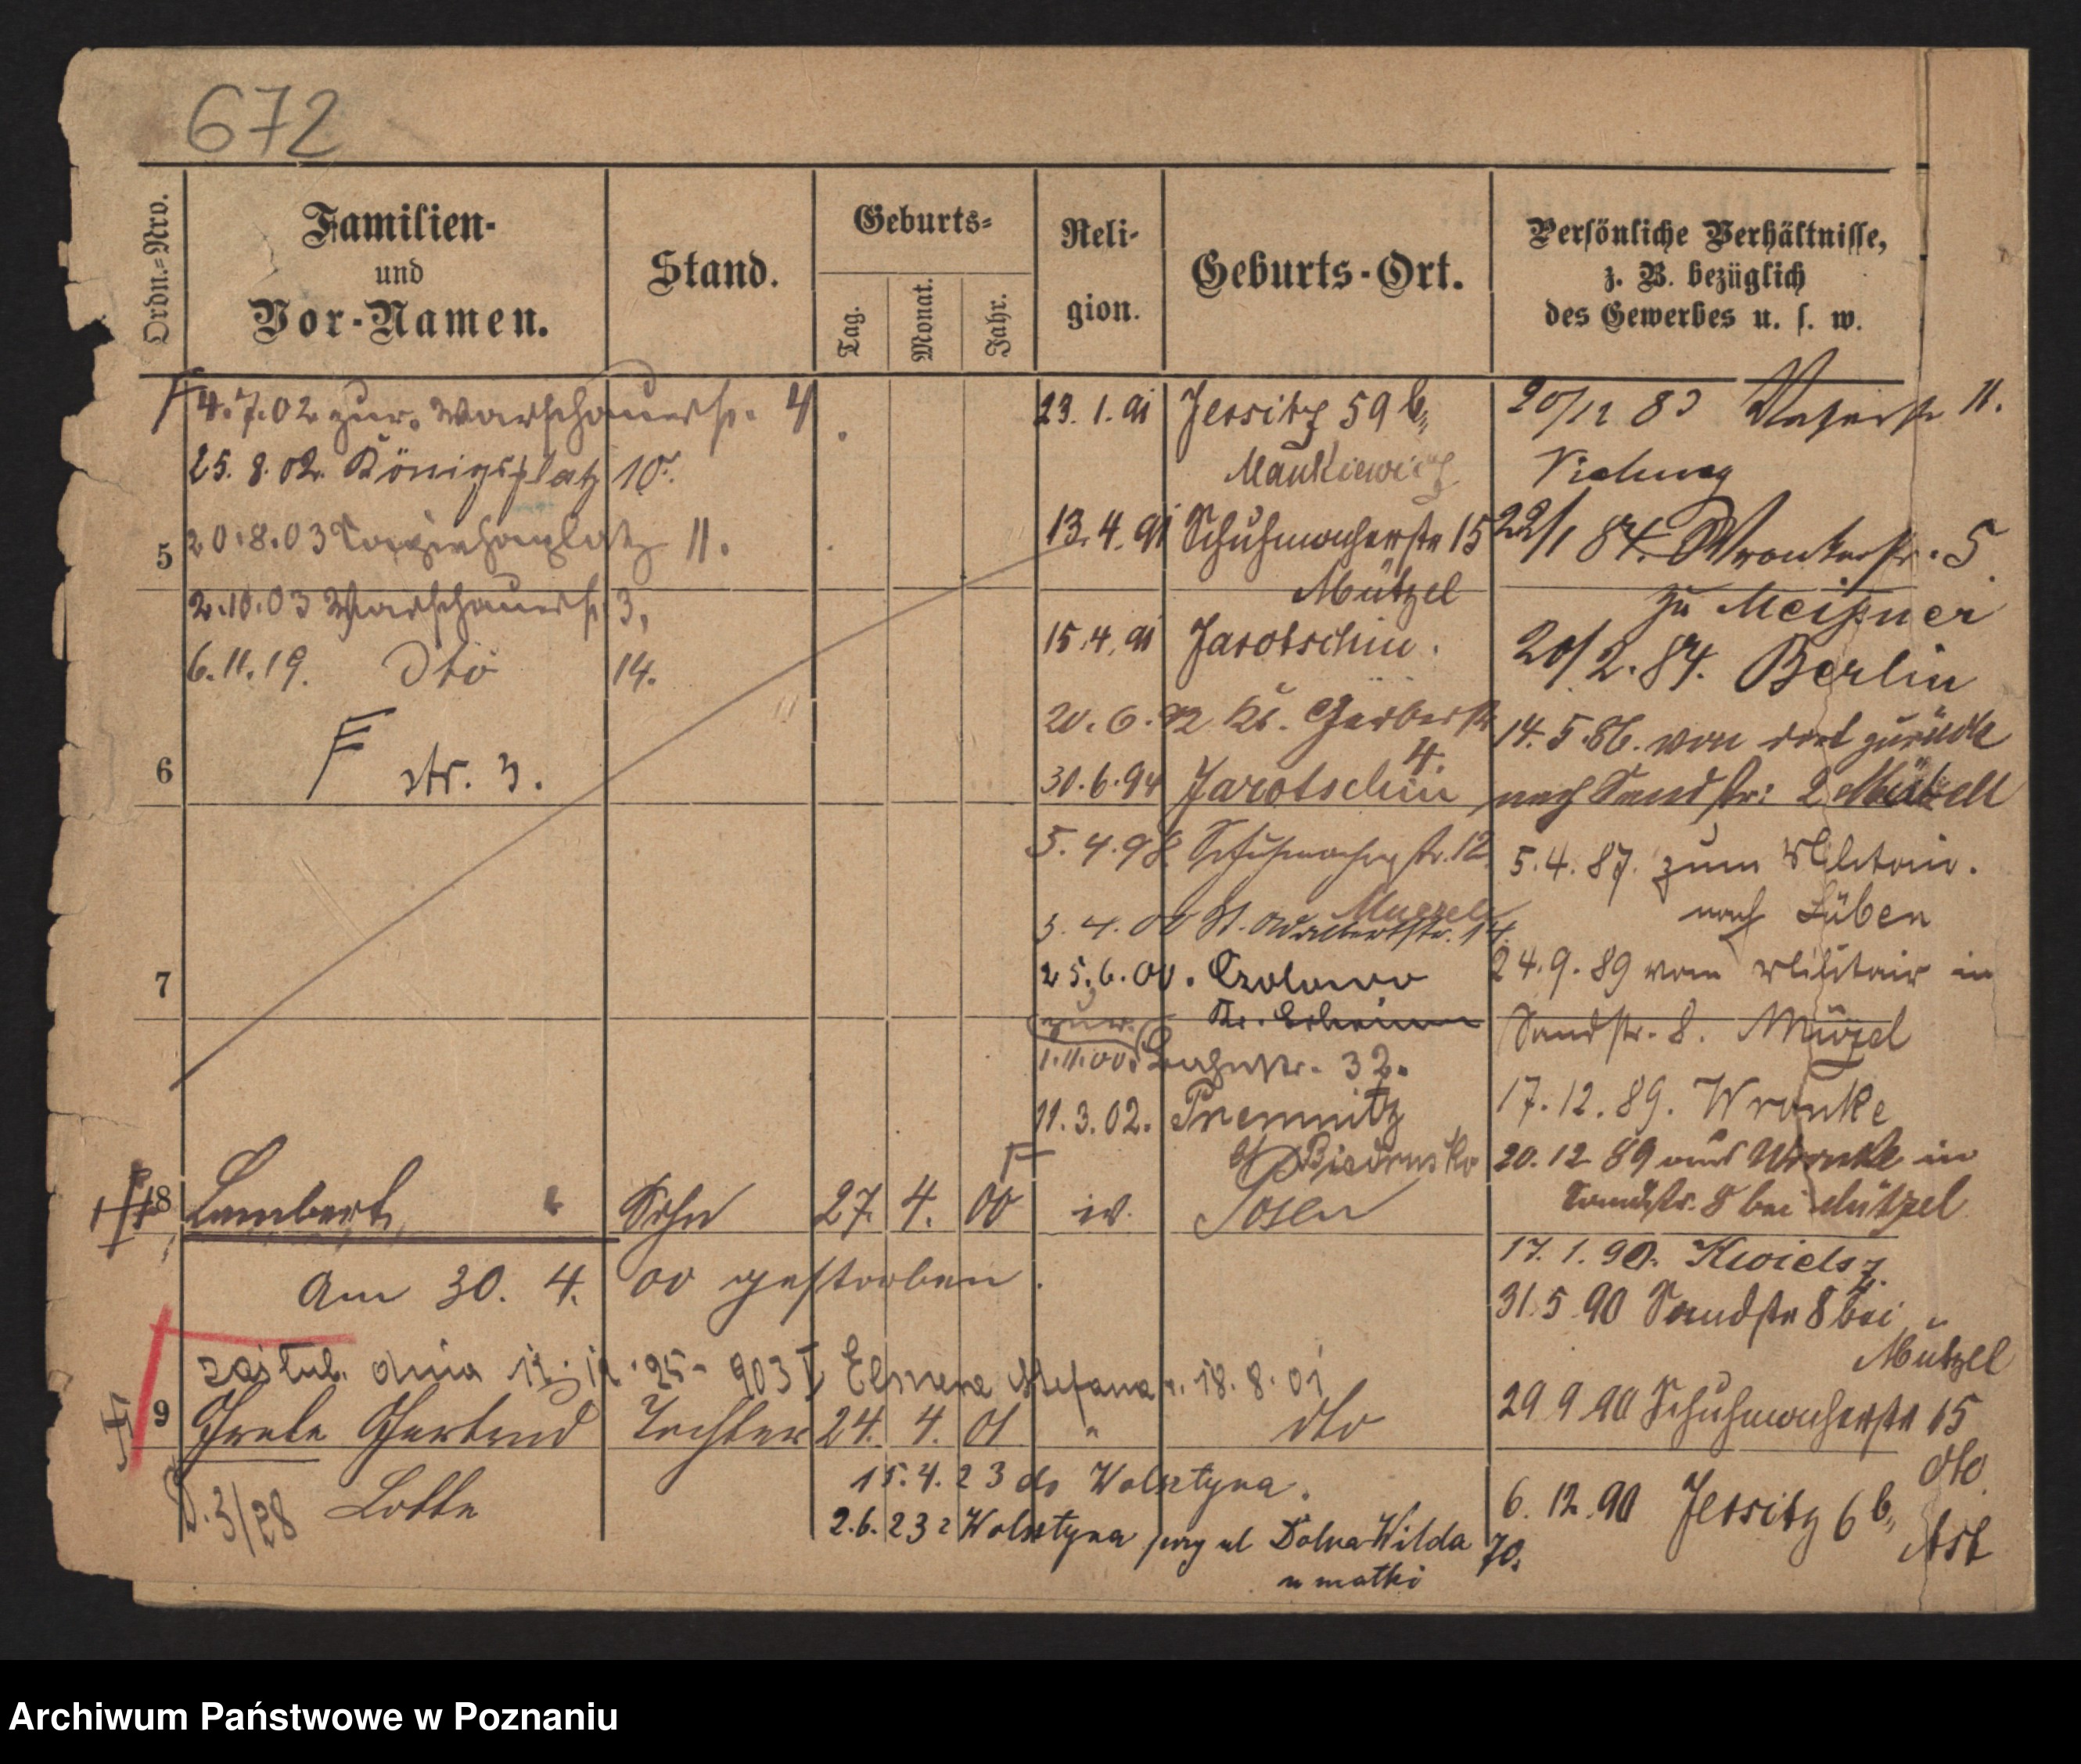 672
Ordn.=Nro.
Familien-
und
Vor-Namen.
Stand.
Geburts=
Tag.
Monat.
Jahr.
Reli-
gion.
Geburts-Ort.
Persönliche Verhältnisse,
z. B. bezüglich
des Gewerbes u. s. w.
4.7.02 zur. Warschauerstr. 4
25.8.02. Königsplatz 10.
5
20.8.03 11.
2.10.03 Warschauerstr. 3,
6.11.19. dto 14.
str. 3.
6
7
23.1.91 Jersitz 59 b,
Mankiewicz
13.4.91 Schuhmacherstr 15
Mützel
15.4.91 Jarotschin.
20.6.92 Kl. Gerberstr
4.
30.6.94 Jarotschin
5.4.98. Schuhmacherstr. 12.
Muezel
3.4.00 St. Adalbertstr. 14.
25.6.00. Czolowo
Kr. Schrimm
zur.
1.11.00. Bahnstr. 32.
11.3.02. Premnitz
Biedrusko
20/12 83 11.
22/1 84. Wronkerstr. 5
zu Meißner
20/2.84. Berlin
14.5.86. von dort zurück
nach Sandstr: 2 Mützell
5.4.87. zum Militair.
nach Lüben
24.9.89 vom Militair in
Sandstr. 8. Müzel
17.12.89. Wronke
20.12 89 aus Wronke in
Sandstr. 8 bei Mützel
17.1.90. Kwielsz
31.5.90 Sandstr 8 bei
Mützel
29 9 90 Schuhmacherstr 15
dto.
6.12.90 Jersitz 6 b,
8 Lambert Sohn 27. 4. 00 Posen
Am 30. 4. 00 gestorben.
zaślub. dnia 903 I Stefana 18.8.01
9 Grete Gertrud Tochter 24. 4. 01 " dto
Lotte
3/28
15.4.23 do Wolsztyna.
2.6.23 z Wolsztyna przy ul Dolna Wilda 70.
u matki
Archiwum Państwowe w Poznaniu